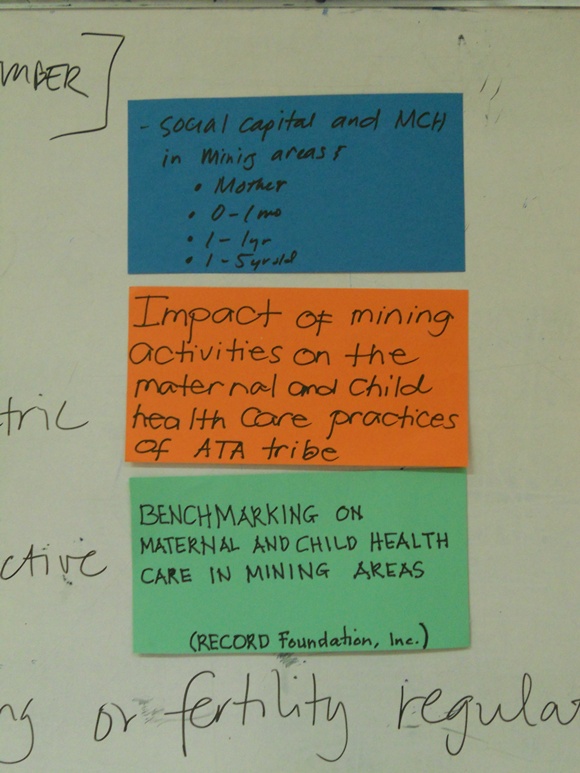 MBER]
- social capital and MCH
in mining areas:
• Mother
• 0-1mo
• 1-1yr
• 1-5yr old
Impact of mining
activities on the
maternal and child
health care practices
of ATA tribe
tric
BENCHMARKING ON
MATERNAL AND CHILD HEALTH
CARE IN MINING AREAS
(RECORD Foundation, Inc.)
ctive
ng or fertility regula